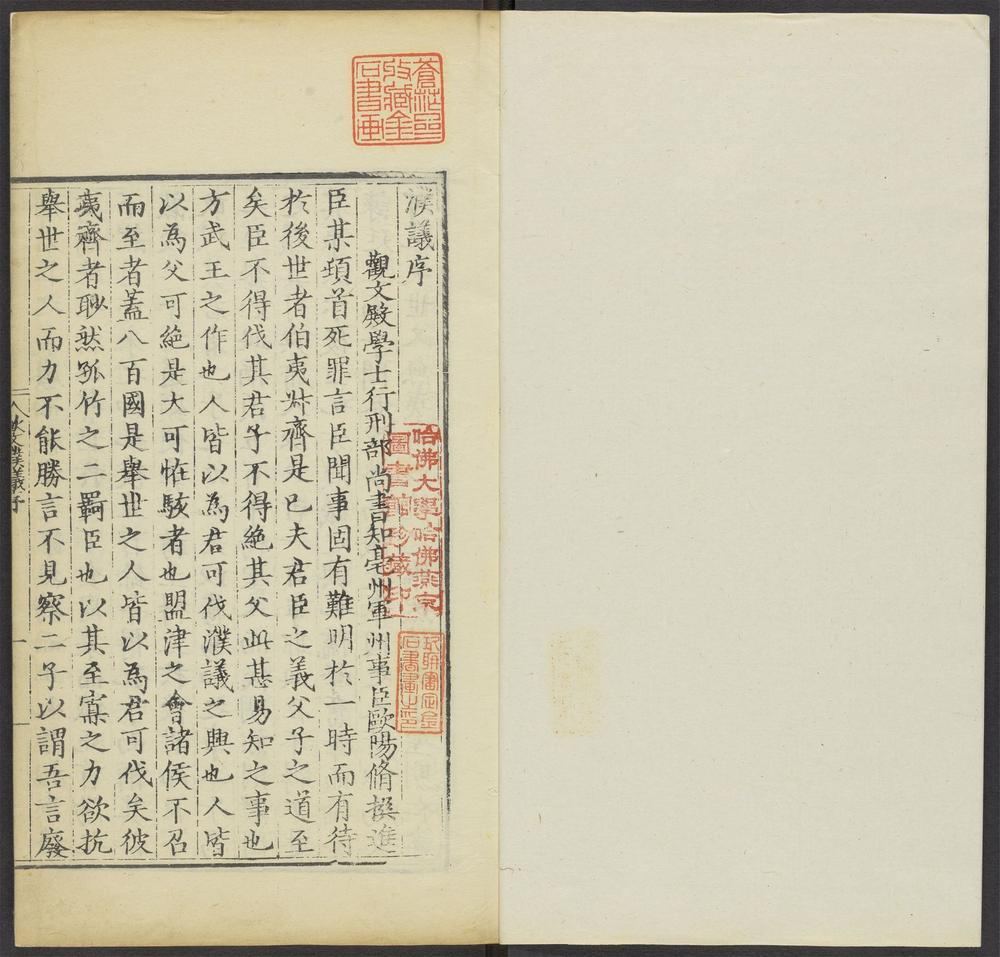 濮議序
觀文殿學士行刑部尚書知亳州軍州事臣歐陽脩撰進
臣某頊首死罪言臣聞事固有難明於一時而有待
於後世者伯夷叔齊是已夫君臣之義父子之道至
矣臣不得伐其君子不得絶其父此甚易知之事也
方武王之作也人皆以為君可伐濮議之興也人皆
以為父可絶是大可恠駭者也盟津之會諸侯不召
而至者蓋八百國是舉世之人皆以為君可伐矣彼
夷齊者眇然孤竹之二羇臣也以其至寡之力欲抗
舉世之人而力不能勝言不見察二子以謂吾言廢
蒼茫齋收藏金石書画
哈佛大學哈佛燕京圖書館珍藏印